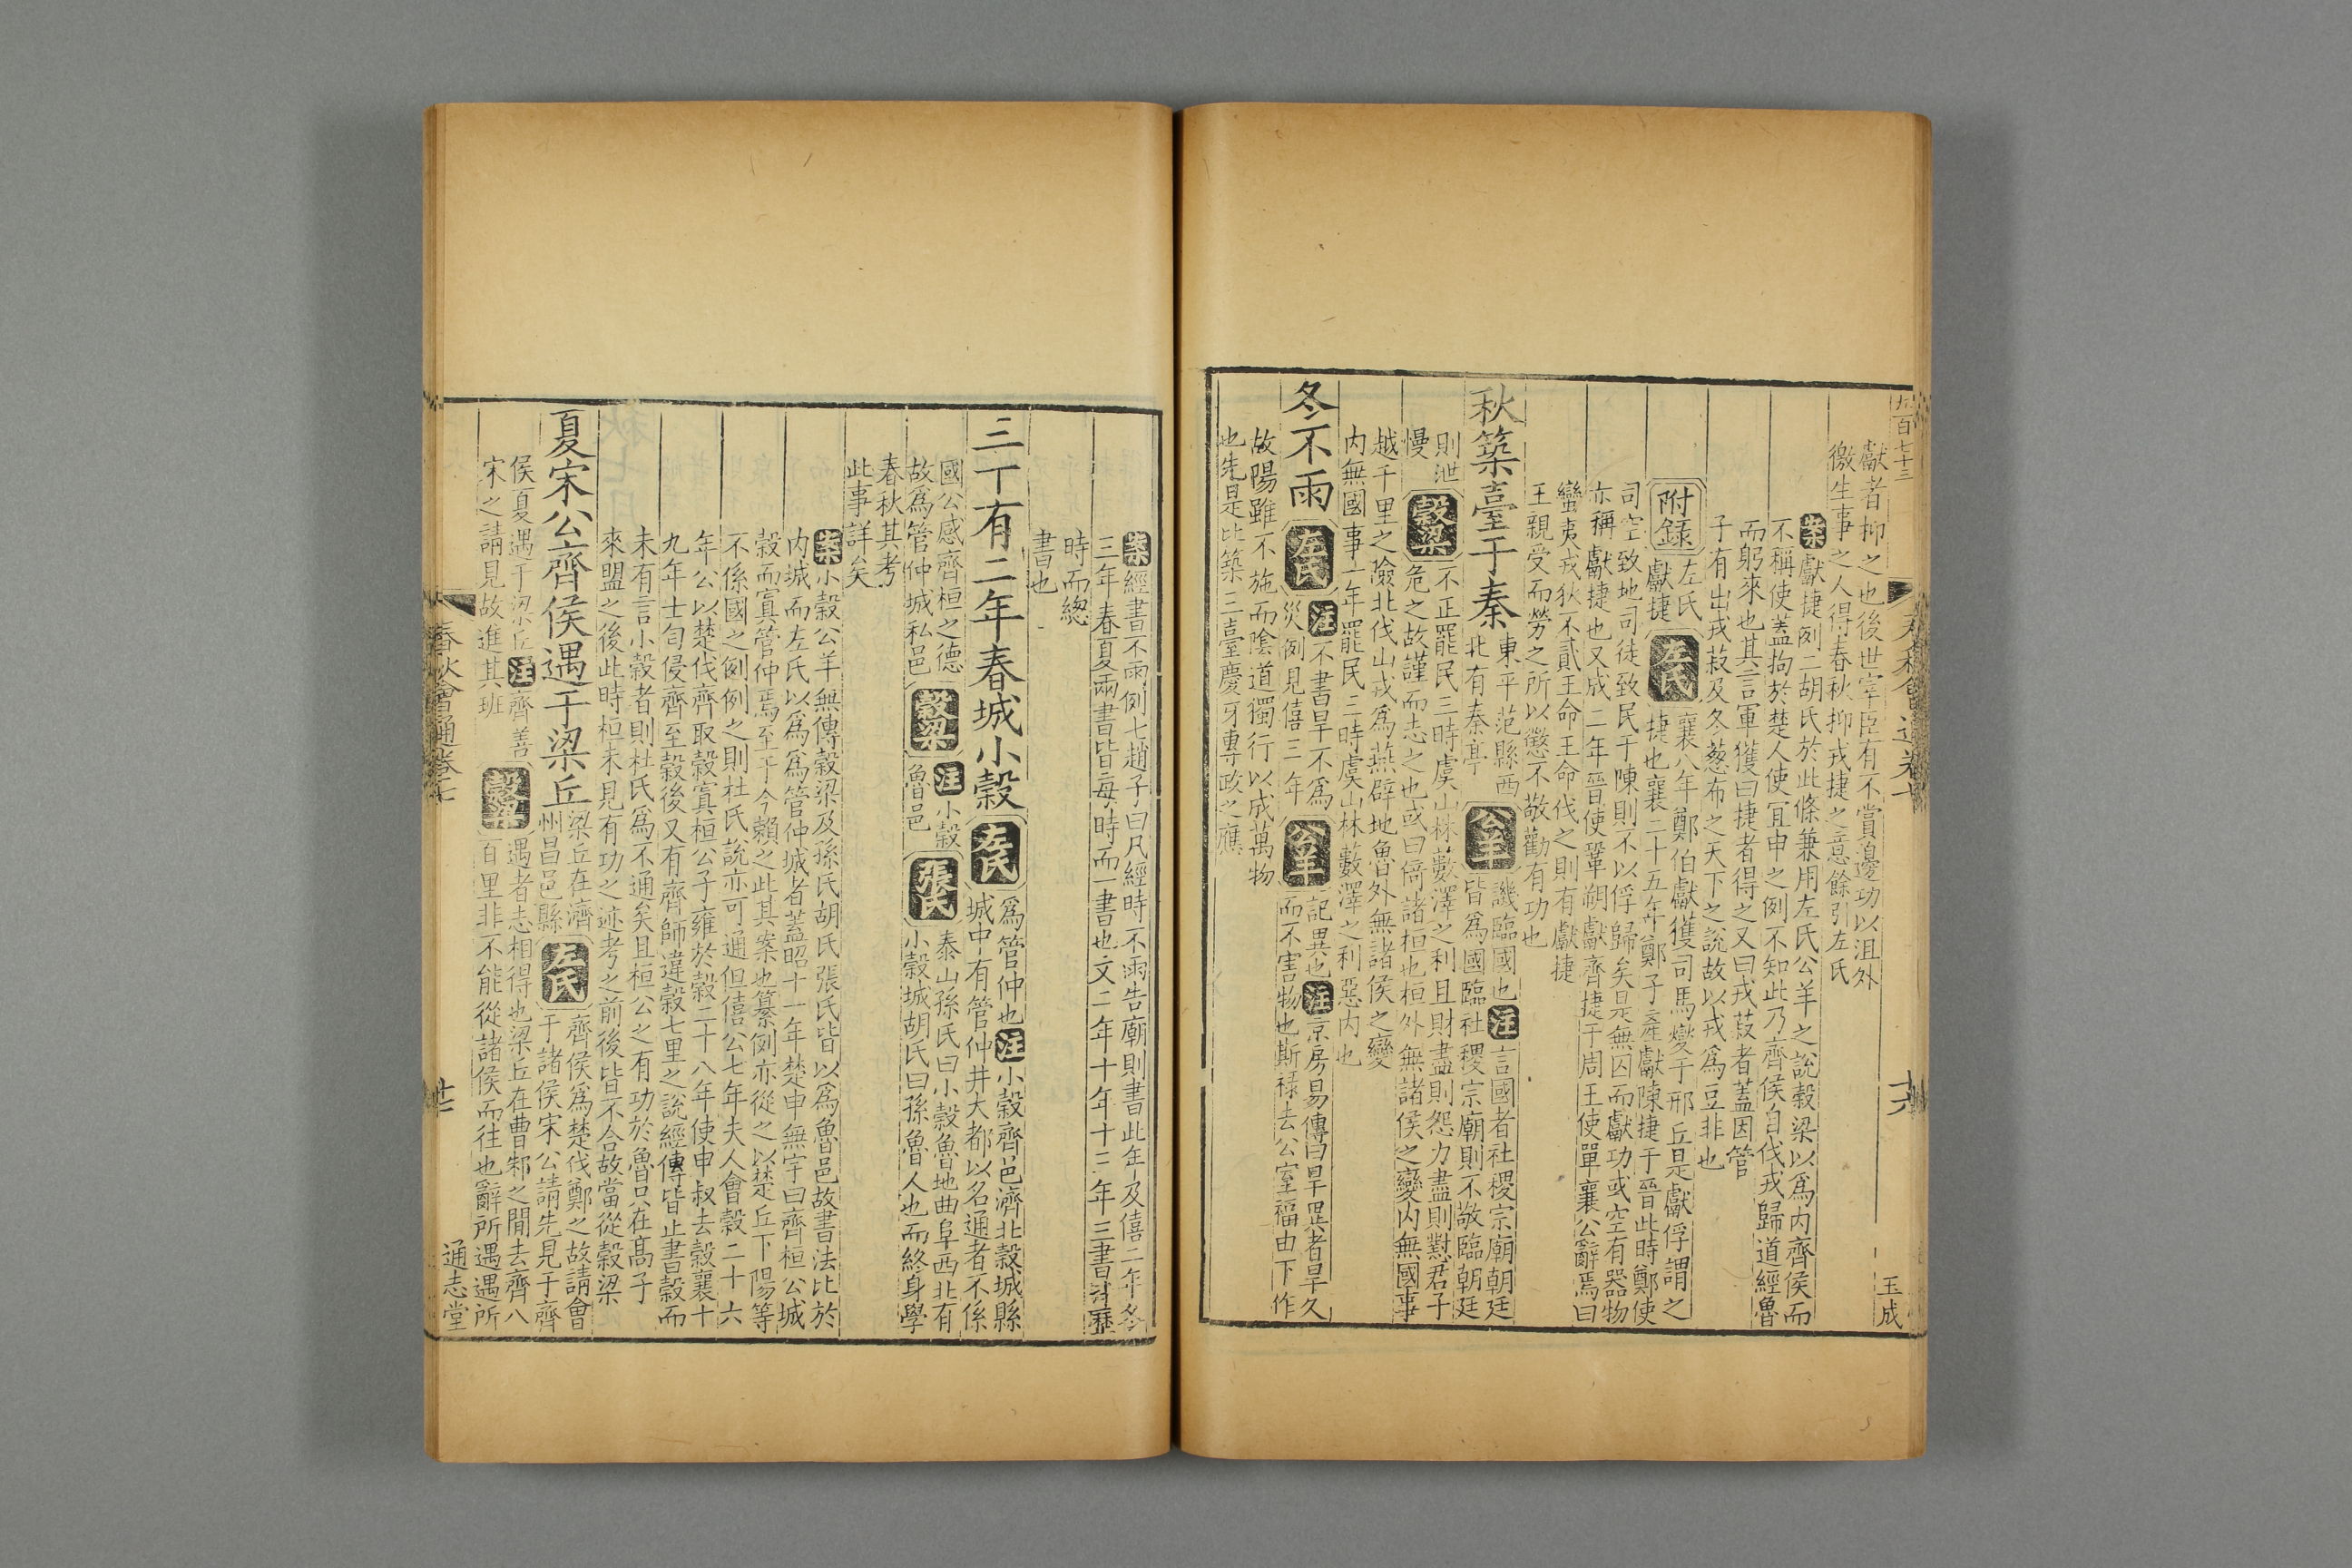 九百七十三
獻者抑之也後世宰臣有不賞邊功以沮外
徼生事之人得春秋抑戎捷之意餘引左氏
案獻捷例二胡氏於此條兼用左氏公羊之說穀梁以爲内齊侯而
不稱使蓋拘於楚人使宜申之例不知此乃齊侯自伐戎歸道經魯
而躬來也其言軍獲曰捷者得之又曰戎菽者蓋因管
子有出戎菽及冬葱布之天下之說故以戎爲豆非也
附錄左氏獻捷
左氏襄八年鄭伯獻獲司馬燮于邢丘是獻俘謂之
捷也襄二十五年鄭子產獻陳捷于晉此時鄭使
司空致地司徒致民于陳則不以俘歸矣是無囚而獻功或空有器物
亦稱獻捷也又成二年晉使鞏朔獻齊捷于周王使單襄公辭焉曰
蠻夷戎狄不貳王命王命伐之則有獻捷
王親受而勞之所以懲不敬勸有功也
秋築臺于秦
東平范縣西
北有秦亭
公羊譏臨國也注言國者社稷宗廟朝廷
皆爲國臨社稷宗廟則不敬臨朝廷
則泄
慢
穀梁不正罷民三時虞山林藪澤之利且財盡則怨力盡則懟君子
危之故謹而志之也或曰倚諸桓也桓外無諸侯之變内無國事
越千里之險北伐山戎爲燕辟地魯外無諸侯之變
内無國事一年罷民三時虞山林藪澤之利惡内也
冬不雨
左氏注不書旱不爲
災例見僖三年
公羊記異也注京房易傳曰旱異者旱久
而不害物也斯祿去公室福由下作
故陽雖不施而陰道獨行以成萬物
也先是比築三臺慶牙專政之應
春秋會通卷七
十六
玉成
案經書不雨例七趙子曰凡經時不雨告廟則書此年及僖二年冬
三年春夏兩書皆每時而一書也文二年十年十三年三書皆歷
時而緫
書也
三十有二年春城小穀
左氏爲管仲也注小穀齊邑濟北穀城縣
城中有管仲井大都以名通者不係
國公感齊桓之德
故爲管仲城私邑
穀梁注小穀
魯邑
張氏泰山孫氏曰小穀魯地曲阜西北有
小穀城胡氏曰孫魯人也而終身學
春秋其考
此事詳矣
案小穀公羊無傳穀梁及孫氏胡氏張氏皆以爲魯邑故書法比於
内城而左氏以爲爲管仲城者蓋昭十一年楚申無宇曰齊桓公城
穀而寘管仲焉至于今賴之此其案也纂例亦從之以楚丘下陽等
不係國之例例之則杜氏說亦可通但僖公七年夫人會穀二十六
年公以楚伐齊取穀寘桓公子雍於穀二十八年使申叔去穀襄十
九年士匄侵齊至穀後又有齊師違穀七里之說經傳皆止書穀而
未有言小穀者則杜氏爲不通矣且桓公之有功於魯只在髙子
來盟之後此時桓未見有功之迹考之前後皆不合故當從穀梁
夏宋公齊侯遇于梁丘
梁丘在濟
州昌邑縣
左氏齊侯爲楚伐鄭之故請會
于諸侯宋公請先見于齊
侯夏遇于梁丘注齊善
宋之請見故進其班
穀梁遇者志相得也梁丘在曹邾之間去齊八
百里非不能從諸侯而往也辭所遇遇所
春秋會通卷七
十七
通志堂